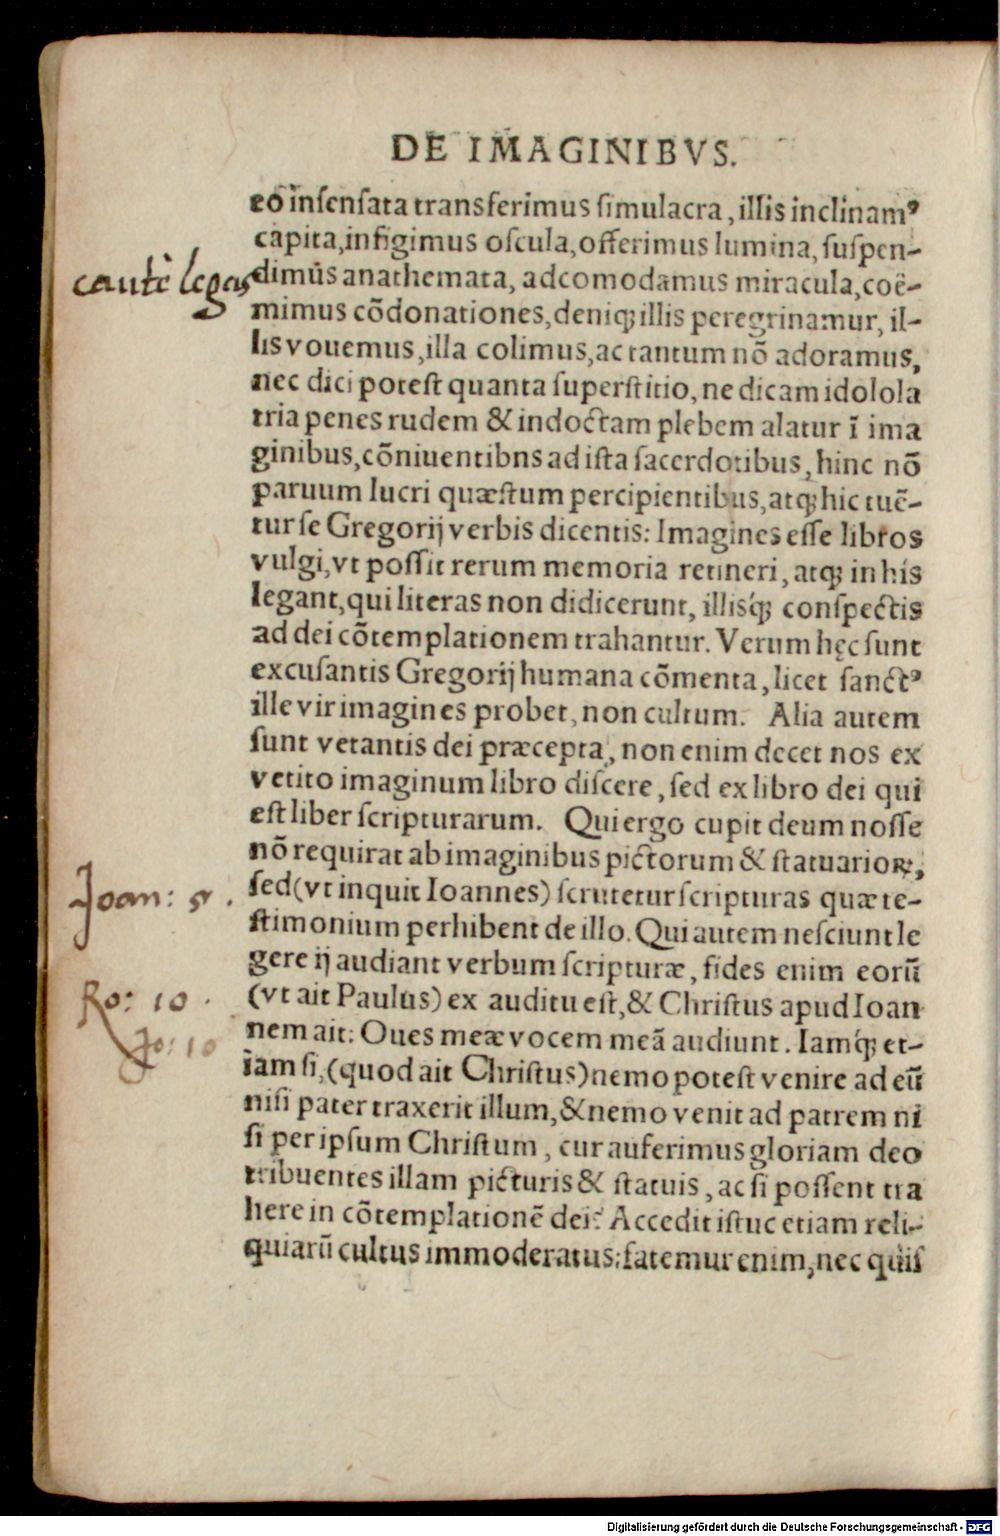 DE IMAGINIBVS.
eo insensata transferimus simulacra, illis inclinamꝰ
capita, infigimus oscula, offerimus lumina, suspen-
cautè legas
dimus anathemata, adcomodamus miracula, coë-
mimus cōdonationes, deniq; illis peregrinamur, il-
lis vouemus, illa colimus, ac tantum nō adoramus,
nec dici potest quanta superstitio, ne dicam idolola
tria penes rudem & indoctam plebem alatur ī ima
ginibus, cōniuentibns ad ista sacerdotibus, hinc nō
paruum lucri quæstum percipientibus, atq; hic tuē-
tur se Gregorij verbis dicentis: Imagines esse libros
vulgi, vt possit rerum memoria retineri, atq; in his
legant, qui literas non didicerunt, illisq́; conspectis
ad dei cōtemplationem trahantur. Verum hęc sunt
excusantis Gregorij humana cōmenta, licet sanctꝰ
ille vir imagines probet, non cultum. Alia autem
sunt vetantis dei præcepta, non enim decet nos ex
vetito imaginum libro discere, sed ex libro dei qui
est liber scripturarum. Qui ergo cupit deum nosse
nō requirat ab imaginibus pictorum & statuarioꝝ,
Joan: 5.
sed (vt inquit Ioannes) scrutetur scripturas quæ te-
stimonium perhibent de illo. Qui autem nesciunt le
gere ij audiant verbum scripturæ, fides enim eorū
Ro: 10.
(vt ait Paulus) ex auditu est, & Christus apud Ioan
Jo: 10
nem ait: Oues meæ vocem meā audiunt. Iamq́; et-
iam si, (quod ait Christus) nemo potest venire ad eū
nisi pater traxerit illum, & nemo venit ad patrem ni
si per ipsum Christum, cur auferimus gloriam deo
tribuentes illam picturis & statuis, ac si possent tra
here in cōtemplationē dei? Accedit istuc etiam reli-
quiarū cultus immoderatus: fatemur enim, nec quis
Digitalisierung gefördert durch die Deutsche Forschungsgemeinschaft - DFG